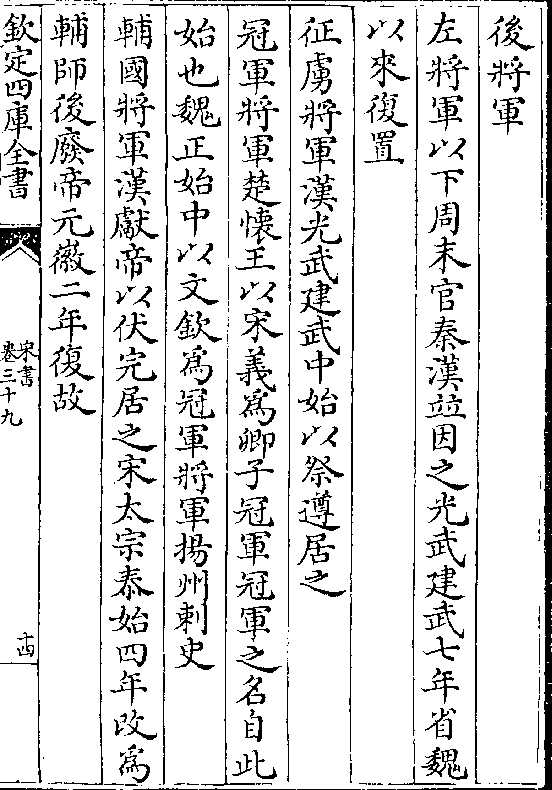 後將軍
左將軍以下周末官秦漢竝因之光武建武七年省魏
以來復置
征虜將軍漢光武建武中始以祭遵居之
冠軍將軍楚懷王以宋義為卿子冠軍冠軍之名自此
始也魏正始中以文欽為冠軍將軍揚州刺史
輔國將軍漢獻帝以伏完居之宋太宗泰始四年改為
輔師後廢帝元徽二年復故
欽定四庫全書
宋書
卷三十九
十四